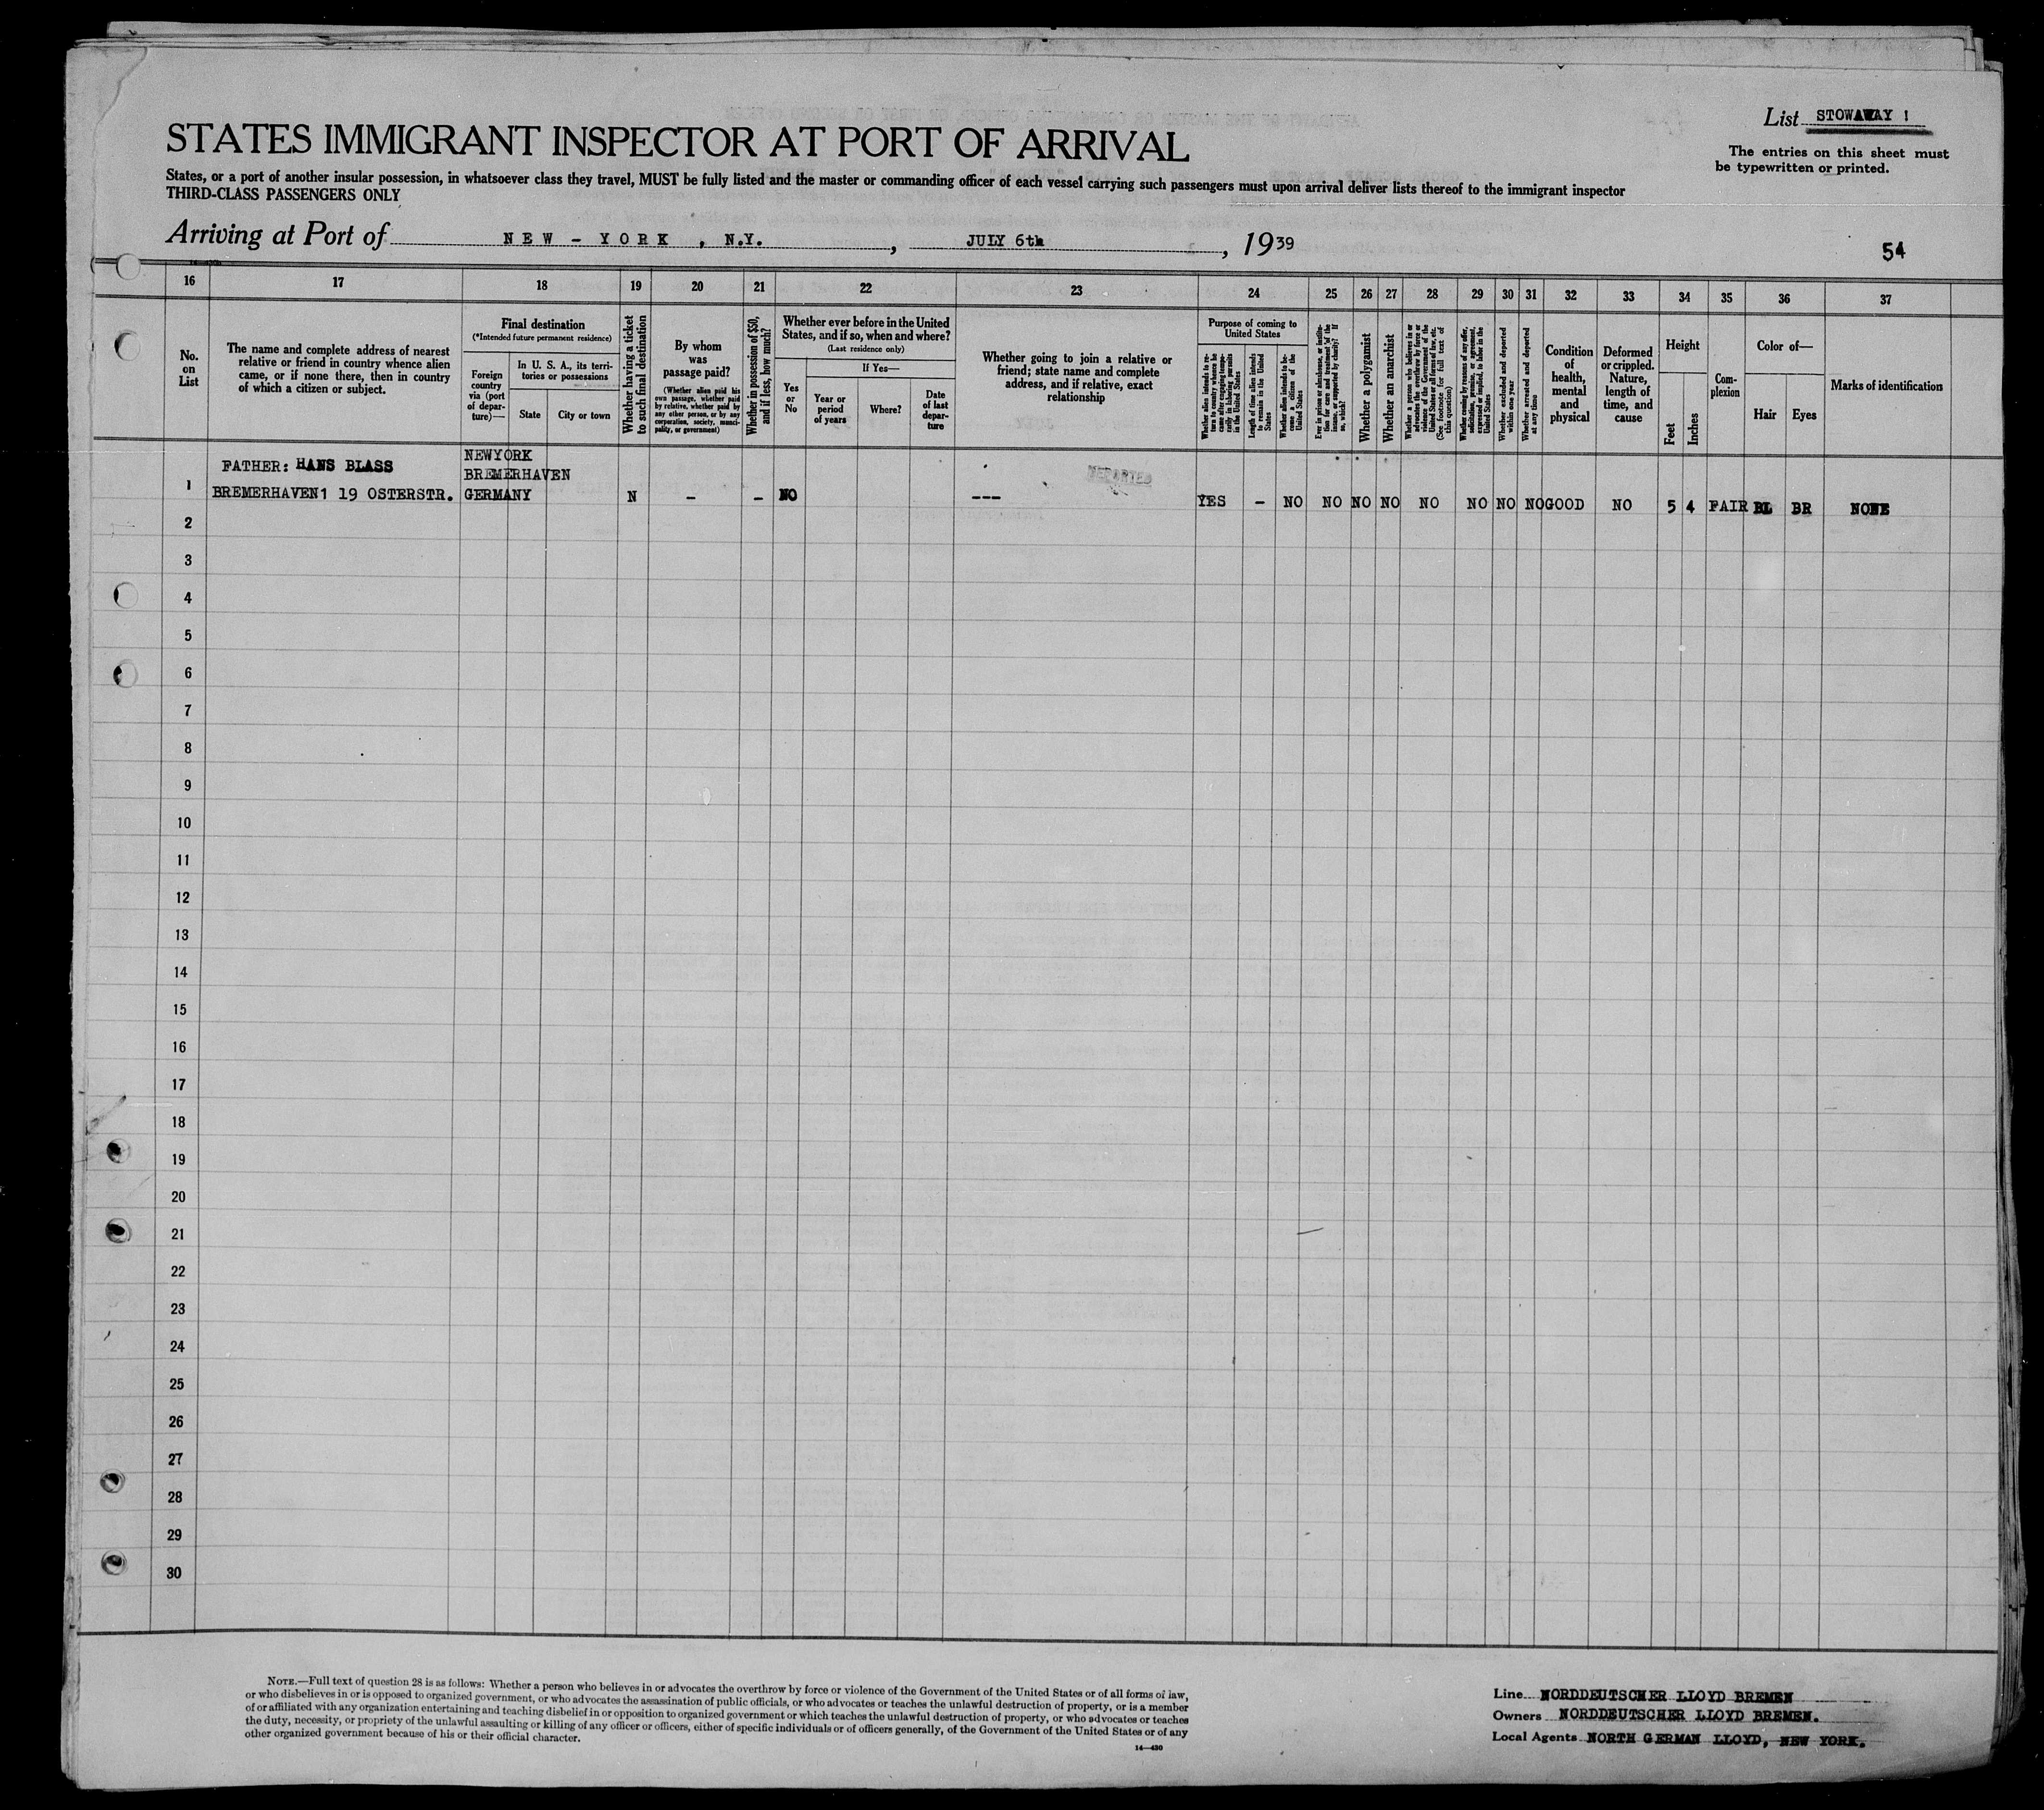 List STOWAWAY 1
STATES IMMIGRANT INSPECTOR AT PORT OF ARRIVAL
The entries on this sheet must
be typewritten or printed.
States, or a port of another insular possession, in whatsoever class they travel, MUST be fully listed and the master or commanding officer of each vessel carrying such passengers must upon arrival deliver lists thereof to the immigrant inspector
THIRD-CLASS PASSENGERS ONLY
Arriving at Port of NEW - YORK , N.Y. , JULY 6th , 1939
54
16 17 18 19 20 21 22 23 24 25 26 27 28 29 30 31 32 33 34 35 36 37
No.
on
List
The name and complete address of nearest
relative or friend in country whence alien
came, or if none there, then in country
of which a citizen or subject.
Final destination
(*Intended future permanent residence)
Foreign
country
via (port
of depar-
ture)—
In U. S. A., its terri-
tories or possessions
State
City or town
Whether having a ticket
to such final destination
By whom
was
passage paid?
(Whether alien paid his
own passage, whether paid
by relative, whether paid by
any other person, or by any
corporation, society, munici-
pality, or government)
Whether in possession of $50,
and if less, how much?
Whether ever before in the United
States, and if so, when and where?
(Last residence only)
Yes
or
No
If Yes—
Year or
period
of years
Where?
Date
of last
depar-
ture
Whether going to join a relative or
friend; state name and complete
address, and if relative, exact
relationship
Purpose of coming to
United States
Whether alien intends to re-
turn to country whence he
came after engaging tempo-
rarily in laboring pursuits
in the United States
Length of time alien intends
to remain in the United
States
Whether alien intends to be-
come a citizen of the
United States
Ever in prison or almshouse, or institu-
tion for care and treatment of the
insane, or supported by charity? If
so, which?
Whether a polygamist
Whether an anarchist
Whether a person who believes in or
advocates the overthrow by force or
violence of the Government of the
United States or all forms of law, etc.
(See footnote for full text of
this question)
Whether coming by reasons of any offer,
solicitation, promise, or agreement,
expressed or implied, to labor in the
United States
Whether excluded and deported
within one year
Whether arrested and deported
at any time
Condition
of
health,
mental
and
physical
Deformed
or crippled.
Nature,
length of
time, and
cause
Height
Feet
Inches
Com-
plexion
Color of—
Hair
Eyes
Marks of identification
DEPARTED
NEWYORK
FATHER: HANS BLASS BREMERHAVEN
1 BREMERHAVEN1 19 OSTERSTR. GERMANY N - - NO --- YES - NO NO NO NO NO NO NO NO GOOD NO 5 4 FAIR BL BR NONE
2
3
4
5
6
7
8
9
10
11
12
13
14
15
16
17
18
19
20
21
22
23
24
25
26
27
28
29
30
NOTE.—Full text of question 28 is as follows: Whether a person who believes in or advocates the overthrow by force or violence of the Government of the United States or of all forms of law,
or who disbelieves in or is opposed to organized government, or who advocates the assassination of public officials, or who advocates or teaches the unlawful destruction of property, or is a member
of or affiliated with any organization entertaining and teaching disbelief in or opposition to organized government or which teaches the unlawful destruction of property, or who advocates or teaches
the duty, necessity, or propriety of the unlawful assaulting or killing of any officer or officers, either of specific individuals or of officers generally, of the Government of the United States or of any
other organized government because of his or their official character.
14—430
Line NORDDEUTSCHER LLOYD BREMEN
Owners NORDDEUTSCHER LLOYD BREMEN.
Local Agents NORTH GERMAN LLOYD, NEW YORK.